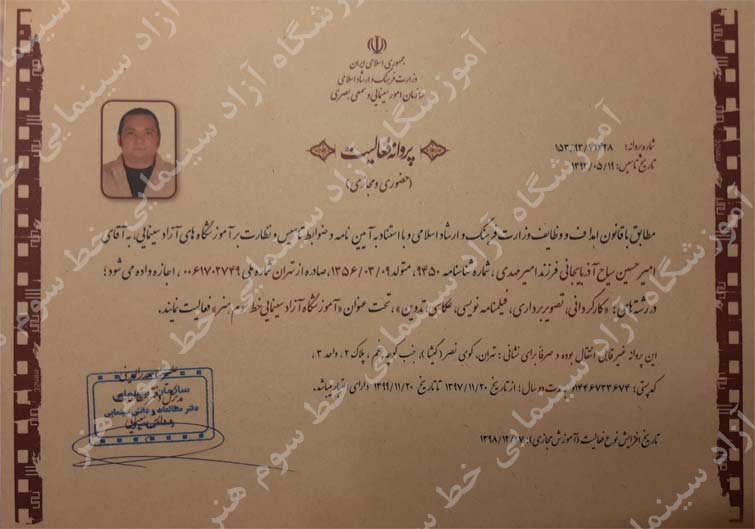 جمهوری اسلامی ایران
وزارت فرهنگ و ارشاد اسلامی
سازمان امور سینمایی و سمعی بصری
پروانه فعالیت
(حضوری و مجازی)
شماره پروانه: ۱۵۳/۹۳/۷۹۴۲۸
تاریخ تاسیس: ۱۳۹۳/۰۵/۱۹
مطابق با قانون اهداف و وظایف وزارت فرهنگ و ارشاد اسلامی و با استناد به آیین نامه و ضوابط تاسیس و نظارت بر آموزشگاه های آزاد سینمایی، به آقای
امیرحسین سیاح آذربایجانی فرزند امیرمهدی، شماره شناسنامه ۹۴۵۰، متولد ۱۳۵۶/۰۳/۰۹، صادره از تهران شماره ملی ۰۰۶۱۷۰۲۷۴۹، اجازه داده می شود؛
در رشته های: «کارگردانی، تصویربرداری، فیلمنامه نویسی، عکاسی، تدوین»، تحت عنوان «آموزشگاه آزاد سینمایی خط سوم هنر» فعالیت نمایند.
این پروانه غیر قابل انتقال بوده و صرفا برای نشانی: تهران، کوی نصر (گیشا)، جنب کوچه پنجم، پلاک ۲، واحد ۳،
کدپستی: ۱۴۴۶۷۳۳۶۷۴ بمدت دو سال؛ از تاریخ ۱۳۹۷/۱۱/۲۰ تا تاریخ ۱۳۹۹/۱۱/۲۰ دارای اعتبار میباشد.
تاریخ افزایش نوع فعالیت (آموزش مجازی): ۱۳۹۸/۱۲/۲۷
سازمان سینمایی
دفتر مطالعات و دانش سینمایی
آموزشگاه آزاد سینمایی خط سوم هنر